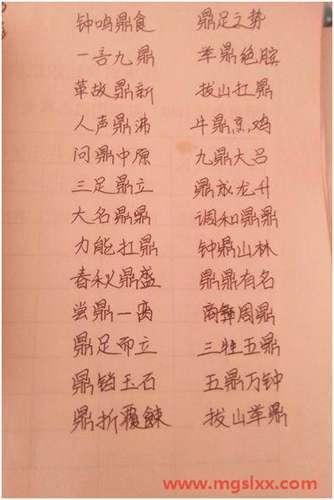 钟鸣鼎食 鼎足之势
一言九鼎 举鼎绝膑
革故鼎新 拔山扛鼎
人声鼎沸 牛鼎烹鸡
问鼎中原 九鼎大吕
三足鼎立 鼎成龙升
大名鼎鼎 调和鼎鼐
力能扛鼎 钟鼎山林
春秋鼎盛 鼎鼎有名
尝鼎一脔 商彝周鼎
鼎足而立 三牲五鼎
鼎铛玉石 五鼎万钟
鼎折覆餗 拔山举鼎
www.mgslxx.com